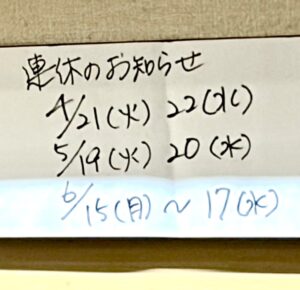 連休のお知らせ
4/21(火) 22(水)
5/19(火) 20(水)
6/15(月)～17(水)